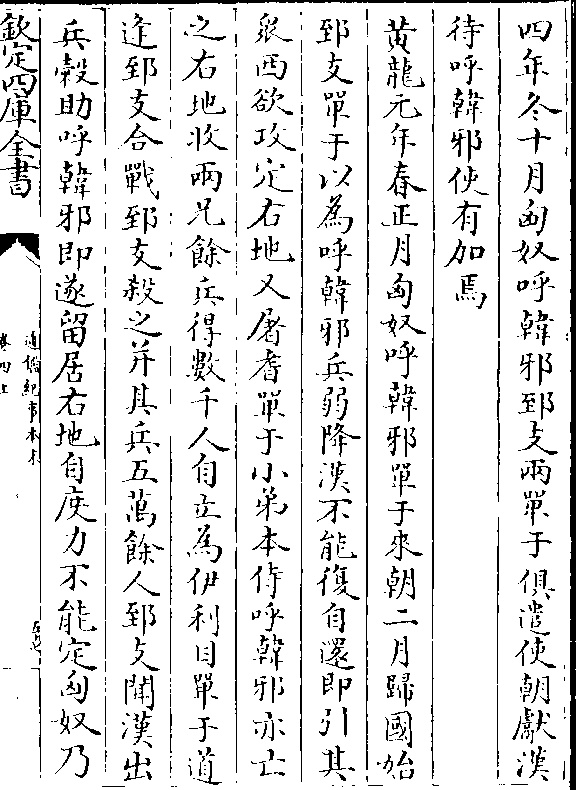 四年冬十月匈奴呼韓邪郅支兩單于俱遣使朝獻漢
待呼韓邪使有加焉
黄龍元年春正月匈奴呼韓邪單于來朝二月歸國始
郅支單于以為呼韓邪兵弱降漢不能復自還即引其
衆西欲攻定右地又屠耆單于小弟本侍呼韓邪亦亡
之右地收兩兄餘兵得數千人自立為伊利目單于道
逢郅支合戰郅支殺之并其兵五萬餘人郅支聞漢出
兵穀助呼韓邪即遂留居右地自度力不能定匈奴乃
欽定四庫全書
通鑑紀事本末
卷四上